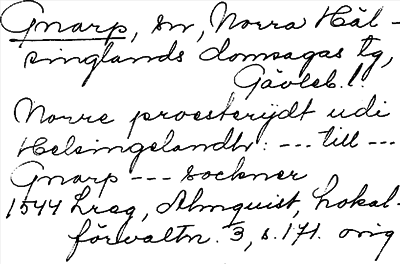 Gnarp, sn, Norra Häl-
singlands domsagas tg,
Gävleb. l.
Norre proesterijdt udi
Helsingelandh: --- till ---
Gnarp --- sockner
1544 Lreg, Almquist, Lokal-
förvaltn. 3, s. 171. orig